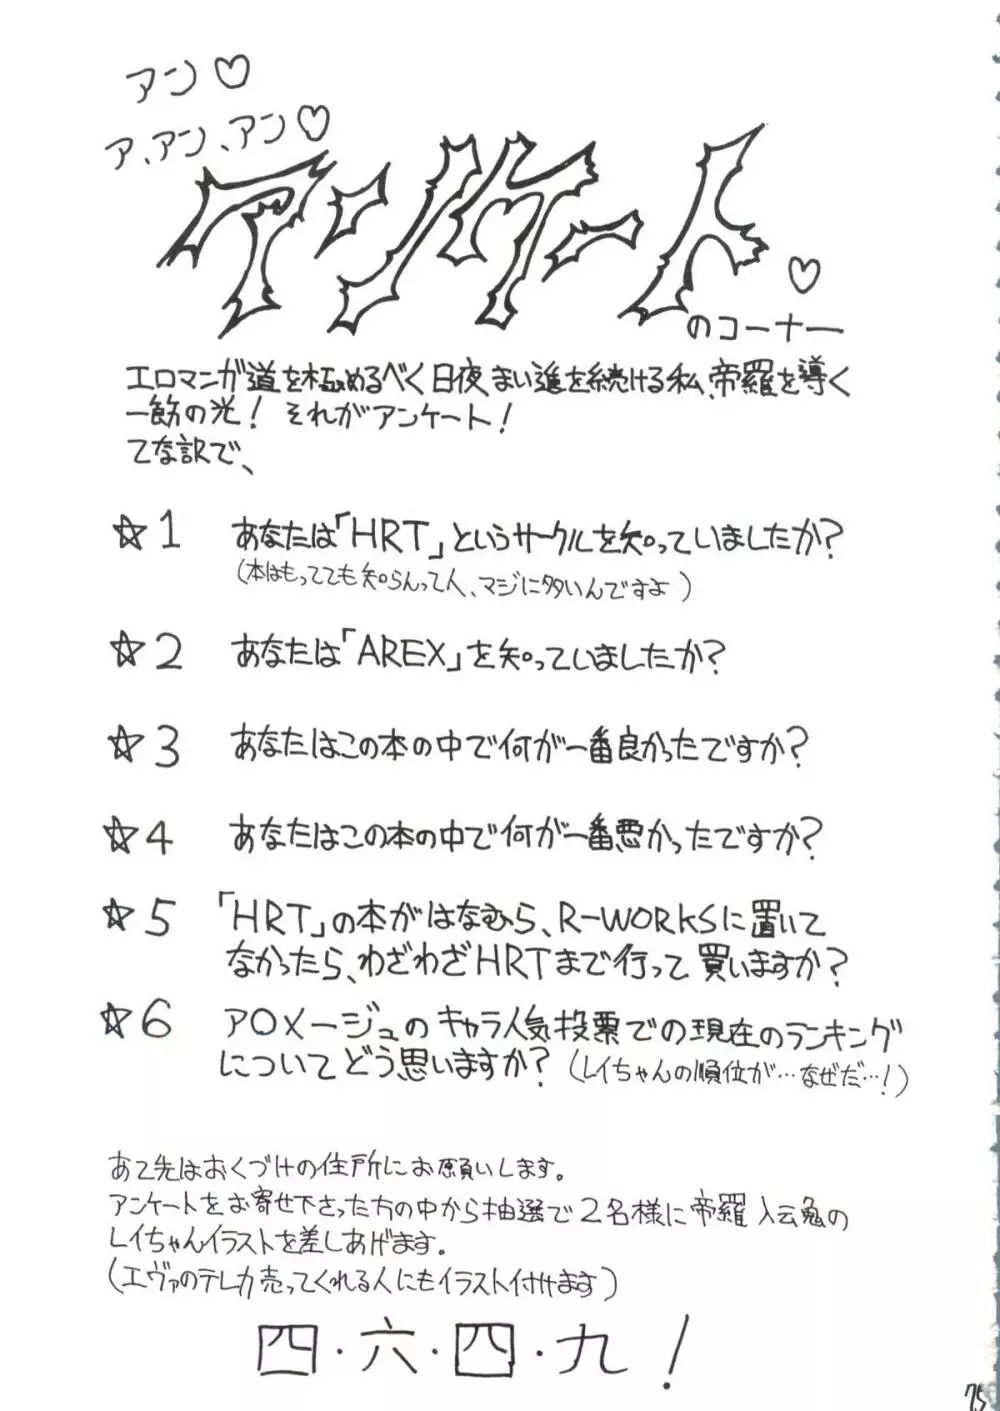 アン♡
ア、アン、アン♡
アンケート♡
のコーナー
エロマンガ道を極めるべく日夜まい進を続ける私、帝羅を導く
一筋の光！それがアンケート！
てな訳で、
☆1 あなたは「HRT」というサークルを知っていましたか？
（本はもってても知らんって人、マジに多いんですよ）
☆2 あなたは「AREX」を知っていましたか？
☆3 あなたはこの本の中で何が一番良かったですか？
☆4 あなたはこの本の中で何が一番悪かったですか？
☆5 「HRT」の本がはなむら、R-WORKSに置いて
なかったら、わざわざHRTまで行って買いますか？
☆6 ア〇メージュのキャラ人気投票での現在のランキング
についてどう思いますか？（レイちゃんの順位が…なぜだ…！）
あて先はおくづけの住所にお願いします。
アンケートをお寄せ下さった方の中から抽選で2名様に帝羅入云鬼の
レイちゃんイラストを差しあげます。
（エヴァのテレカ売ってくれる人にもイラスト付けます）
四・六・四・九！
75